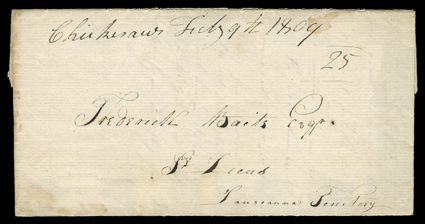 Chickesaws July 9th 1809
25
Frederick Baits Esqr.
St Louis
Louiseana Terretory